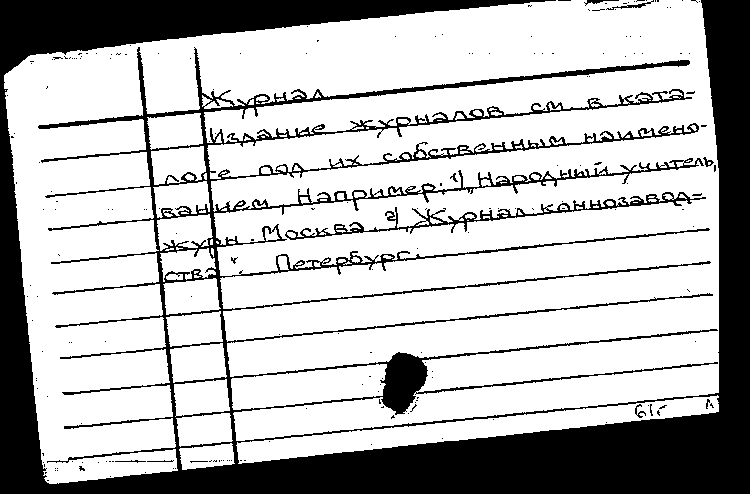 Журнал
Издание журналов см. в ката=
логе под их собственным наимено-
ванием, Например: 1) „Народный учитель,
журн. Москва. 2) „Журнал коннозавод=
ства“. Петербург.